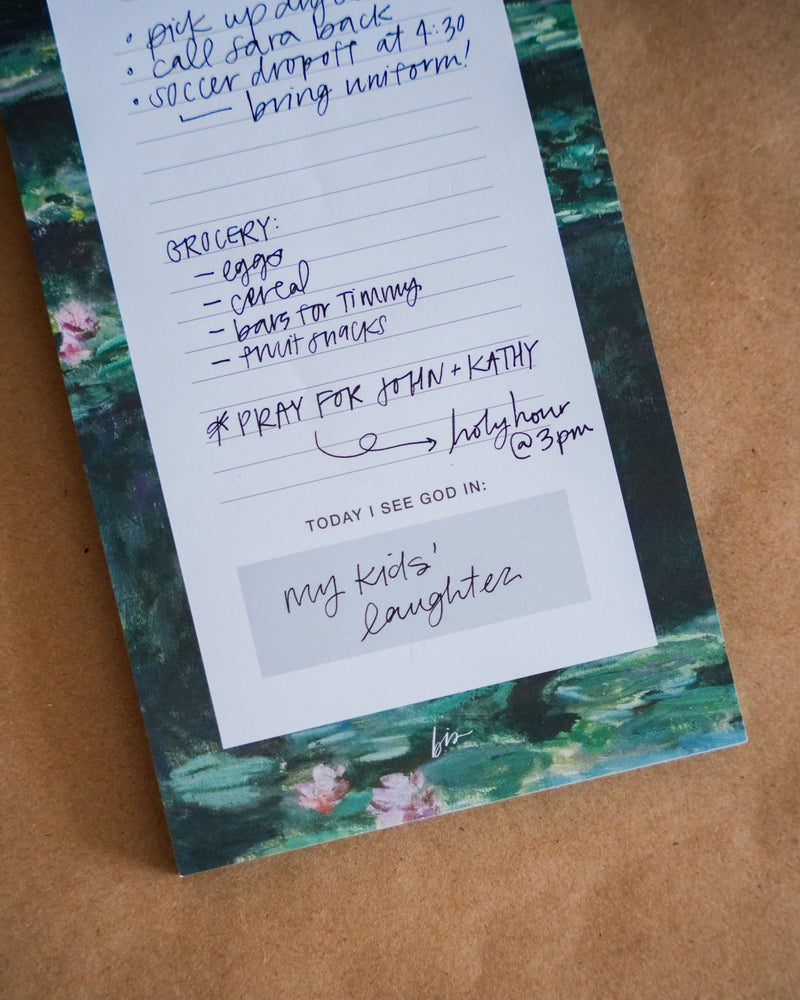 • pick up
• call sara back
• soccer dropoff at 4:30
— bring uniform!
GROCERY:
– eggs
– cereal
– bars for Timmy
– fruit snacks
* PRAY FOR JOHN + KATHY
holy hour
@ 3pm
TODAY I SEE GOD IN:
my kids'
laughter
bis